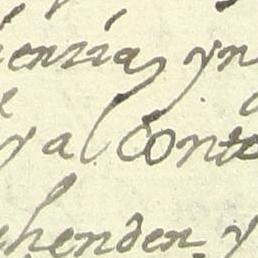 ienzia, yn
y al Conte
ehenden y